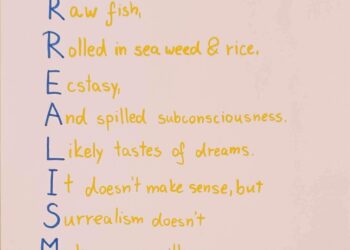 Raw fish,
Rolled in seaweed & rice,
Ecstasy,
And spilled subconsciousness.
Likely tastes of dreams.
It doesn't make sense, but
Surrealism doesn't
M